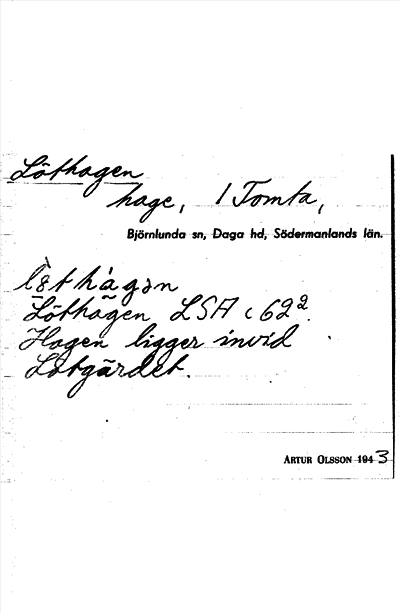 Löthagen
hage, 1 Tomta,
Björnlunda sn, Daga hd, Södermanlands län.
Löthagen LSA c 62²
Hagen ligger invid
Lötgärdet.
ARTUR OLSSON 1943